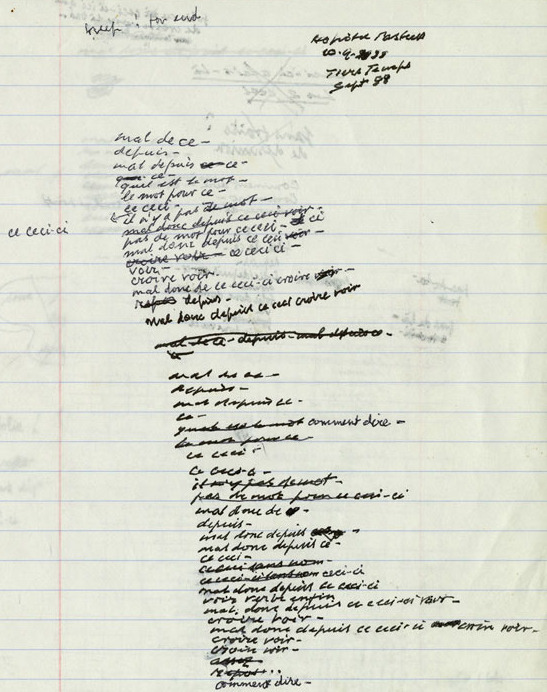 Keep! for end
Hôpital Pasteur
Tiers Temps
Sept 88
mal de ce -
depuis -
mal depuis ce - ce -
ce -
quel est le mot -
le mot pour ce -
ce ceci -
il n'y a pas de mot -
mal donc depuis ce ceci voir -
ce ceci-ci
pas de mot pour ce ceci - ci
mal donc depuis ce ceci voir -
croire voir - ce ceci ci -
voir -
croire voir -
mal donc de ce ceci-ci croire voir -
depuis -
mal donc depuis ce ceci croire voir
mal de ce - depuis - mal depuis ce -
mal de ce -
depuis -
mal depuis ce -
ce -
quel est le mot comment dire -
le mot pour ce -
ce ceci -
ce ceci-ci -
il n'y a pas de mot -
pas de mot pour ce ceci-ci
mal donc de
depuis -
mal donc depuis
mal donc depuis ce -
ce ceci -
ce ceci sans nom -
ce ceci-ci ceci-ci
mal donc depuis ce ceci-ci
mal donc depuis ce ceci-ci voir -
croire voir -
mal donc depuis ce ceci-ci croire voir -
croire voir -
croire voir -
assez -
comment dire -